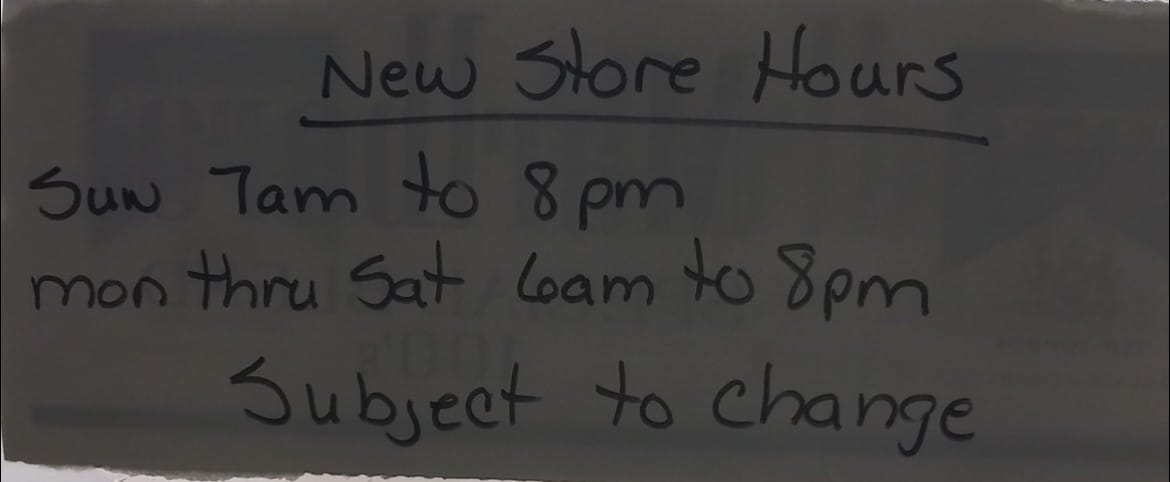 New Store Hours
Sun 7am to 8pm
mon thru Sat 6am to 8pm
Subject to change
100's